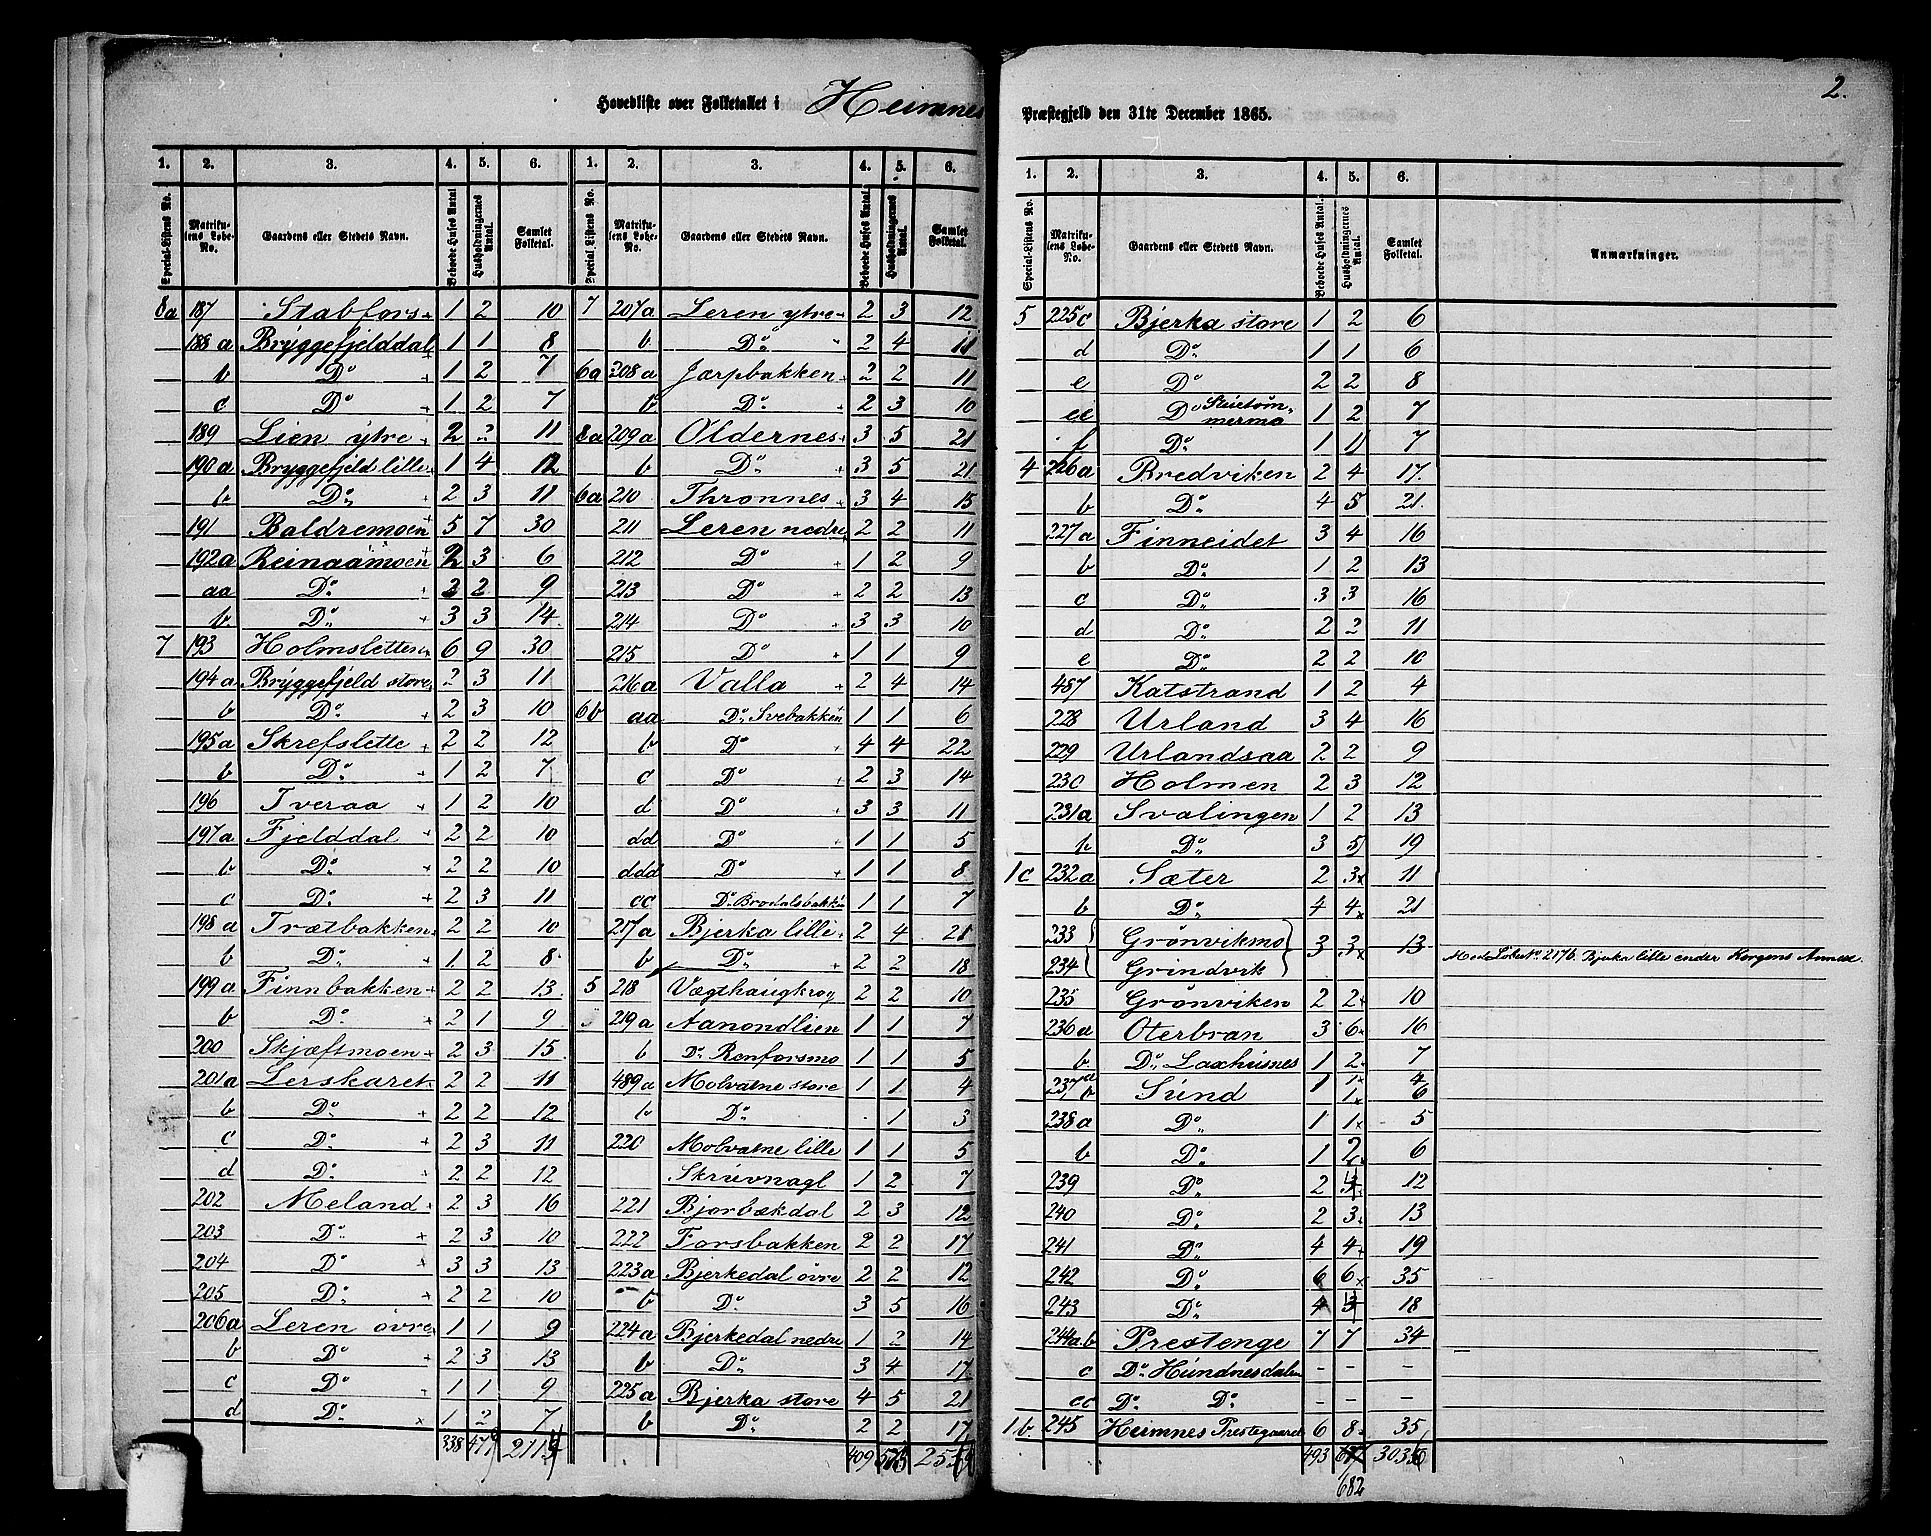 2.
Hovedliste over Folketallet i Heimnes Præstegjeld den 31te December 1865.
1. 2. 3. 4. 5. 6.
Special-Listens No. Matrikulens Løbe-No. Gaardens eller Stedets Navn. Beboede Huses Antal Husholdningernes Antal. Samlet Folketal.
8a 187 Stabfors 1 2 10
188 a Bryggefjelddal 1 1 8
b Do 1 2 7
c Do 1 2 7
189 Lien ytre 2 2 11
190 a Bryggefjeld lille 1 4 12
b Do 2 3 11
191 Baldremoen 5 7 30
192a Reinaamoen 2 3 6
aa Do 2 2 9
b. Do 3 3 14
7 193 Holmsletten 6 9 30
194 a Bryggefjeld store 2 3 11
b Do 2 3 10
195a Skrefslette 2 2 12
b Do 1 2 7
196 Tveraa 1 2 10
197a Fjelddal 2 2 10
b Do 2 2 10
c Do 2 3 11
198 a Trætbakken 2 2 10
b Do 1 2 8
199 a Finnbakken 2 2 13
b Do 2 1 9
200 Skjæftmoen 2 3 15
201a Lerskaret 2 2 11
b Do 2 2 12
c Do 2 3 11
d Do 2 2 12
202 Meland 2 3 16
203 Do 2 3 10
204 Do 3 3 13
205 Do 2 2 10
206a Leren övre 1 1 9
b Do 2 3 13
c Do 1 1 9
d Do 1 2 7
338
1. 2. 3. 4. 5. 6.
Special-Listens No. Matrikulens Løbe-No. Gaardens eller Stedets Navn. Beboede Huses Antal. Husholdningernes Antal. Samlet Folketal.
7 207a Leren ytre 2 3 12
b Do 2 4 11
6a 208a Jarpbakken 2 2 11
b Do 2 3 10
8a 209a Oldernes 3 5 21
b Do 3 5 21
6a 210 Thronnes 3 4 15
211 Leren nedre 2 2 11
212 Do 1 2 9
213 Do 2 2 13
214 Do 3 3 10
215 Do 1 1 9
216a Valla 2 4 14
6b aa Do Svebakken 1 1 6
b Do 4 4 22
c Do 2 3 14
d Do 3 3 11
dd Do 1 1 5
ddd Do 1 1 8
cc Do Brodalsbakken 1 1 7
217a Bjerka lille 2 4 21
b Do 2 2 18
5 218 Vægthaugkrog 2 2 10
219a Aanondlien 1 1 7
b Do Renforsmo 1 1 5
489a Molvatne store 1 1 4
b Do 1 3
220 Molvatne lille 1 1 5
Skruvnagl 1 2 7
221 Bjorbækdal 2 3 12
222 Forsbakken 2 2 17
223a Bjerkedal övre 2 2 12
b Do 3 5 16
224a Bjerkedal nedre 1 2 14
b Do 3 4 17
225a Bjerka store 4 5 21
b Do 2 2 17
409
1. 2. 3. 4. 5. 6.
Special-Listens No. Matrikulens Løbe-No. Gaardens eller Stedets Navn. Beboede Huses Antal. Husholdningernes Antal. Samlet Folketal. Anmærkninger.
5 225c Bjerka store 1 2 6
d Do 1 1 6
e Do 2 2 8
ee Do 1 2 7
f Do 1 1 7
4 226a Bredviken 2 4 17
b Do 4 5 21
227a Finneidet 3 4 16
b Do 1 2 13
c Do 3 3 16
d Do 2 2 11
e Do 2 2 10
487 Katstrand 1 2 4
228 Urland 3 4 16
229 Urlandsaa 2 2 9
230 Holmen 2 3 12
231a Svalingen 1 2 13
b Do 3 5 19
1c 232a Sæter 2 3 11
b Do 4 4 21
233 Grönvikmo 3 3 13
234 Grindvik Med Löbe No 217b Bjerka lille under Korgens Annex.
235 Grönviken 2 2 10
236a Oterbran 3 6 16
b. Do Laxhusnes 1 2 7
237a Sund 1 1 4
b 1 6
238a Do 1 1 5
b Do 1 2 6
239 Do 2 12
240 Do 2 3 13
241 Do 4 4 19
242 Do 6 6 35
243 Do 4 18
244a.b Prestenge 7 7 34
c Do Hundnesdalen - - -
cc Do Do - - -
1.b. 245 Heimnes Prestegaard 6 8 35
493
682